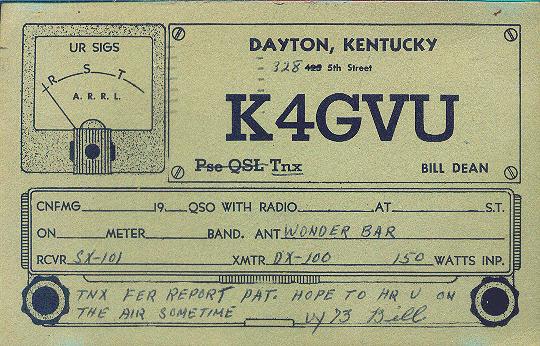 UR SIGS
R S T
A. R. R. L.
DAYTON, KENTUCKY
328 425 5th Street
K4GVU
Pse QSL Tnx
BILL DEAN
CNFMG 19 QSO WITH RADIO AT S.T.
ON METER BAND. ANT WONDER BAR
RCVR SX-101 XMTR DX-100 150 WATTS INP.
TNX FER REPORT PAT. HOPE TO HR U ON
THE AIR SOMETIME vy 73 Bill